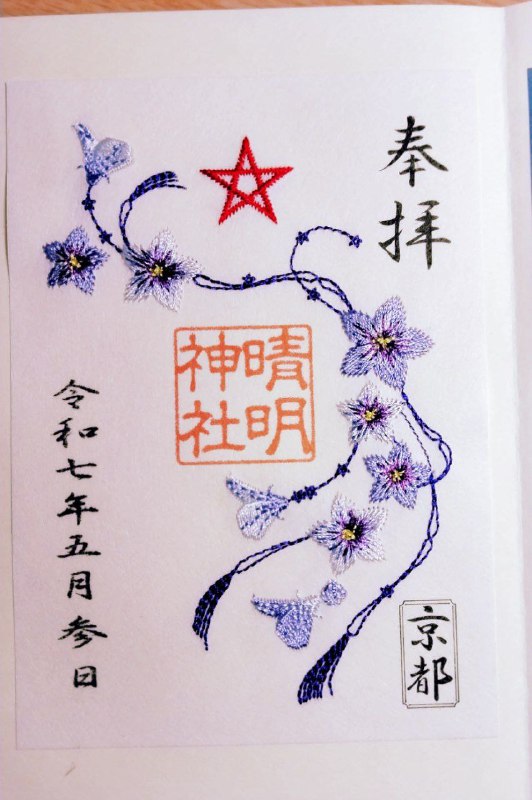 奉拝
晴明
神社
京都
令和七年五月参日